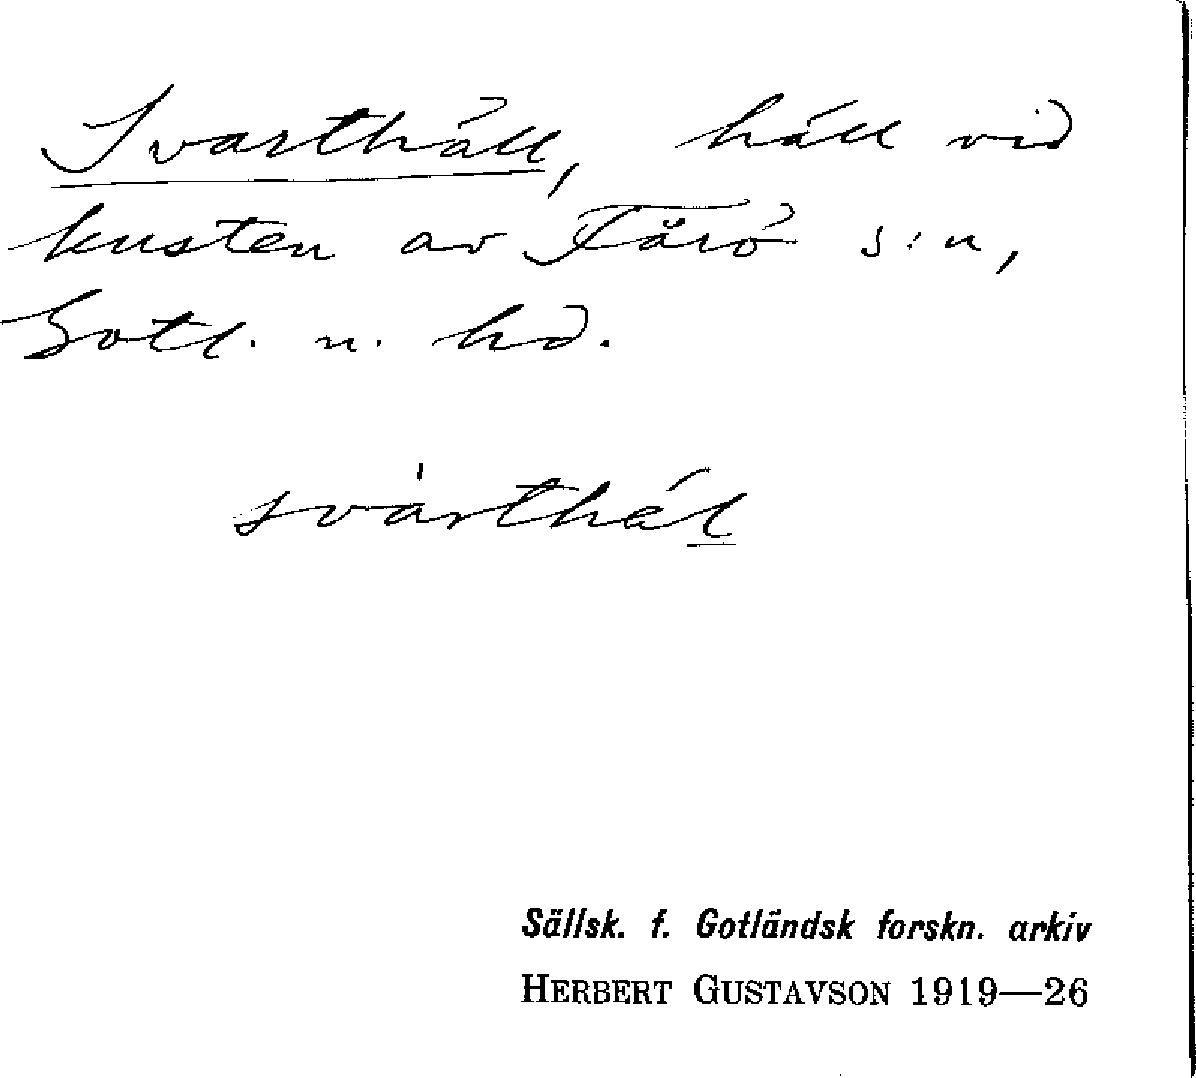 Svarthäll, häll vid
kusten av Fårö s:n,
Gotl. n. hd.
svàrthál
Sällsk. f. Gotländsk forskn. arkiv
HERBERT GUSTAVSON 1919—26